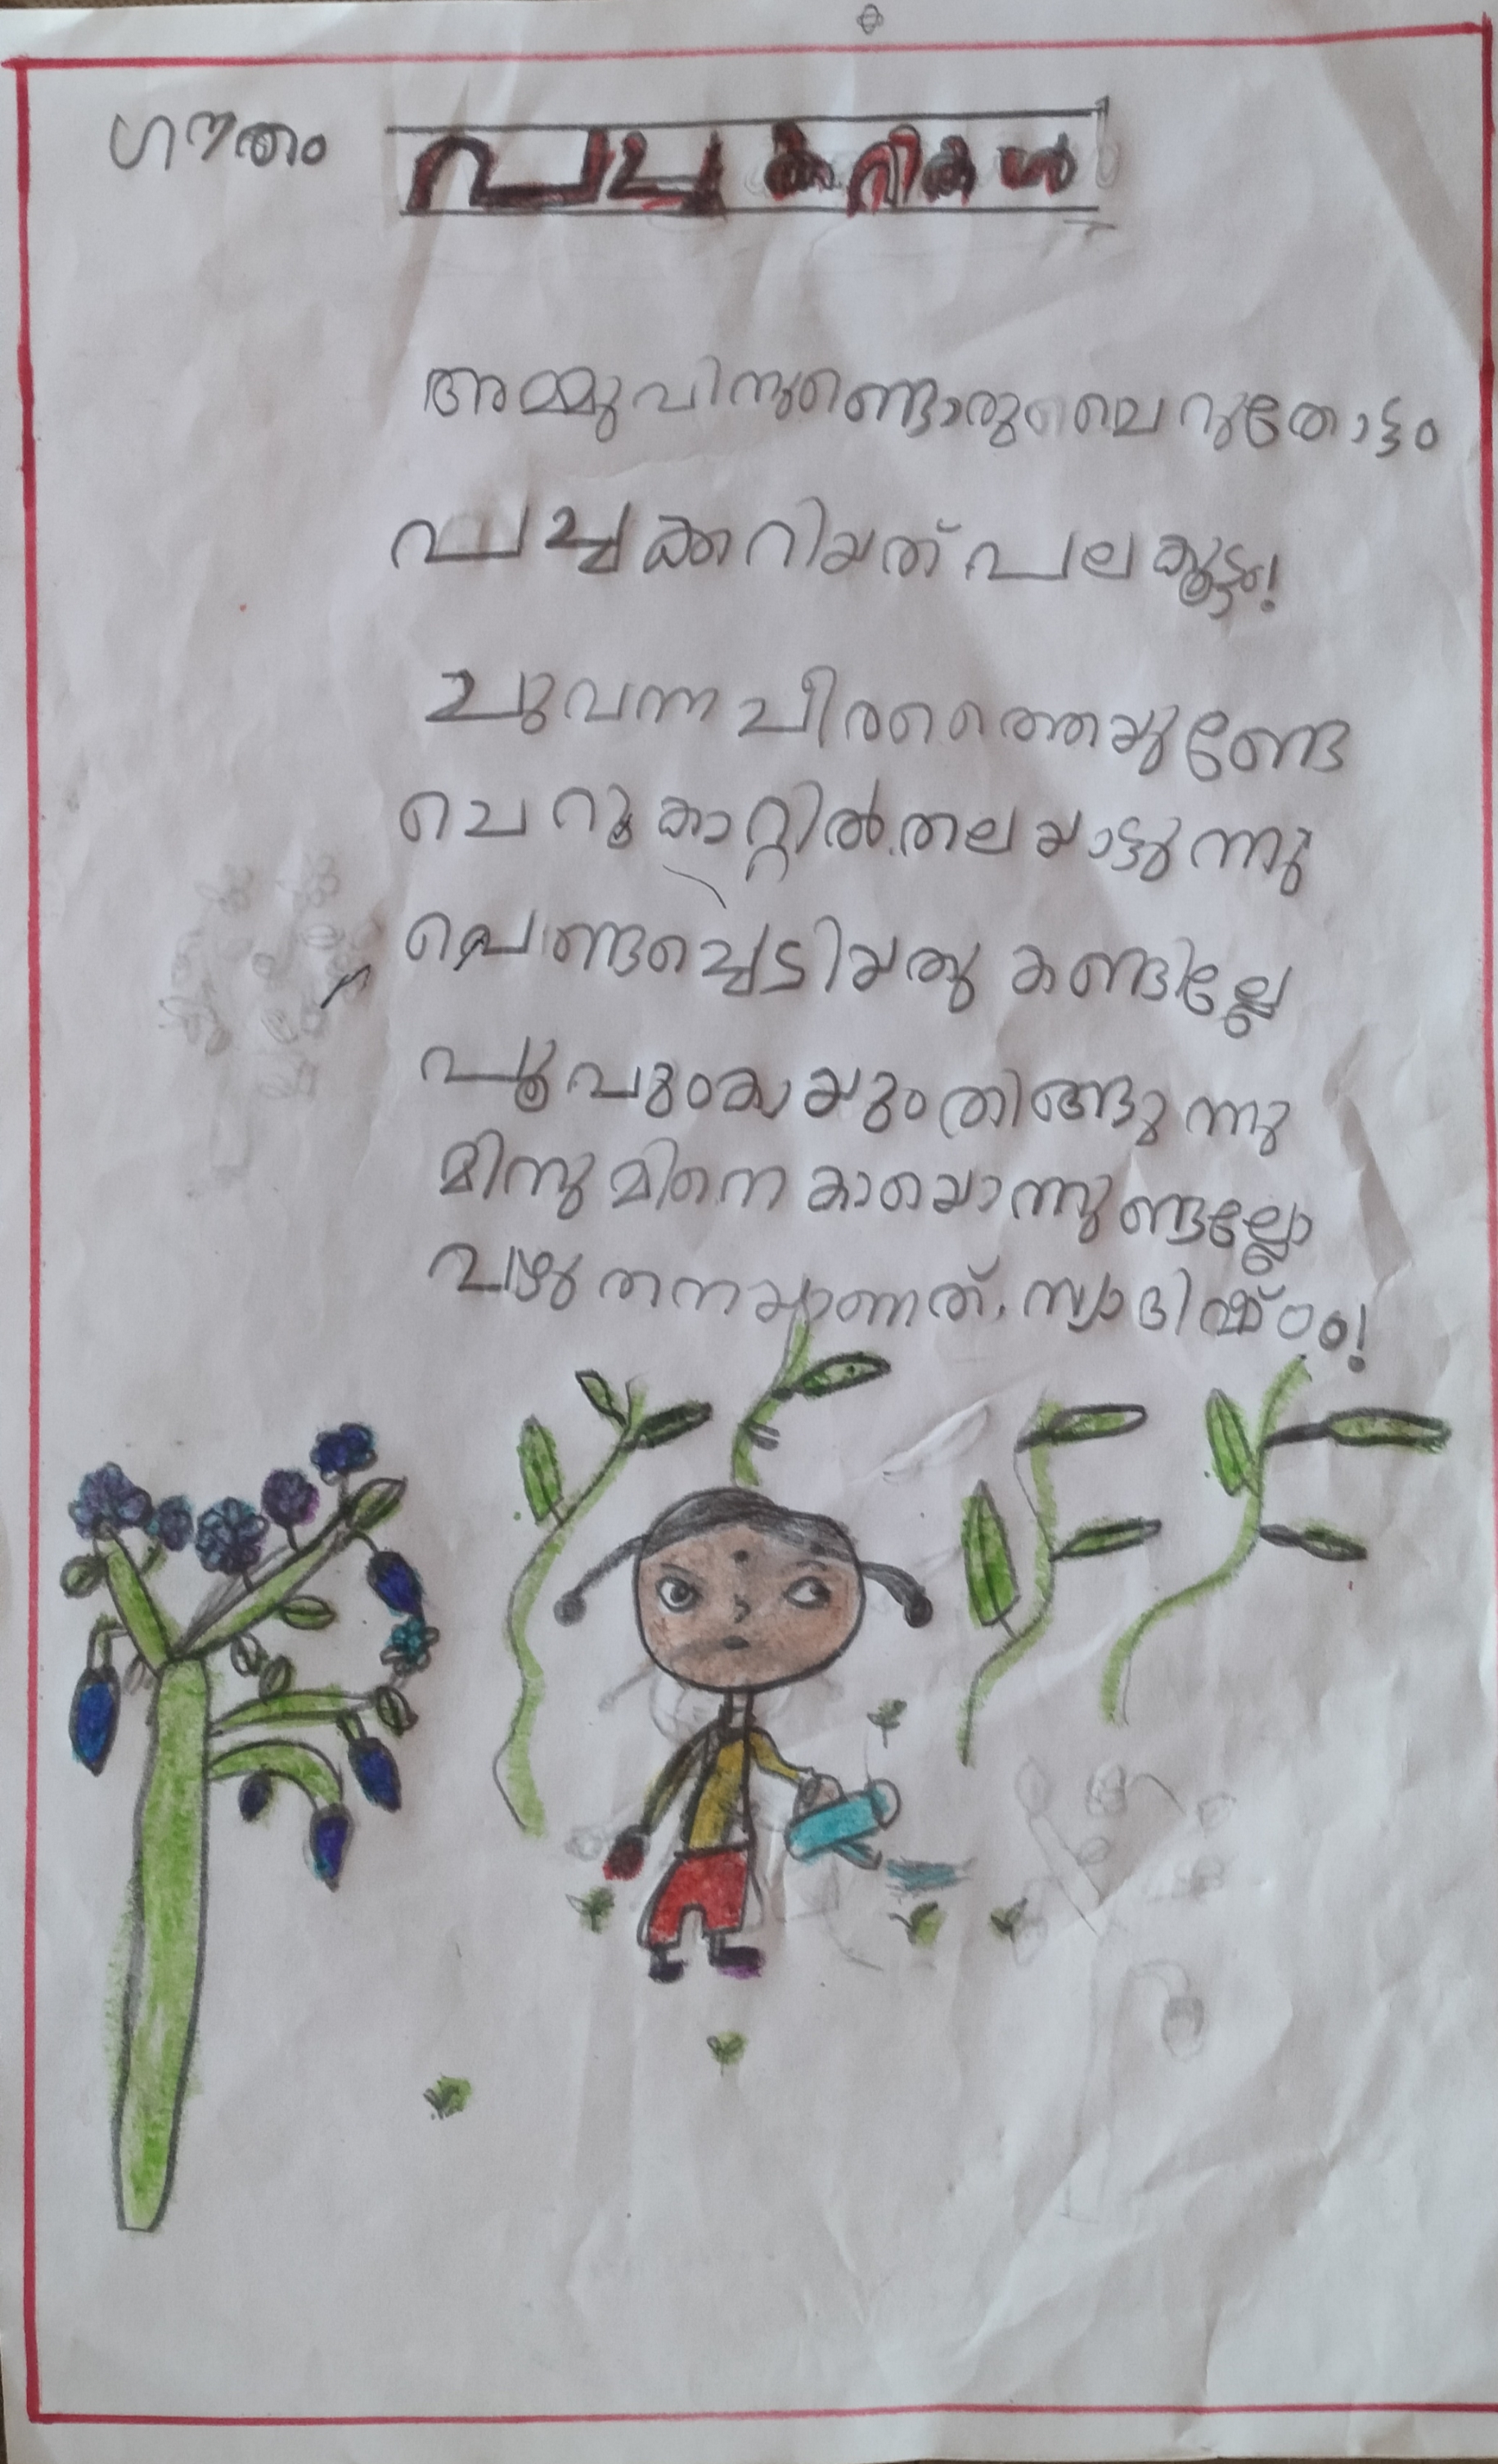 ഗൗതം പച്ചകറികൾ
അമ്മുവിനുണ്ടൊരു ചെറുതോട്ടം
പച്ചക്കറിയത് പലകൂട്ടം!
ചുവന്ന ചീരത്തൈയുണ്ടേ
ചെറുകാറ്റിൽ തലയാട്ടുന്നു
വെണ്ടച്ചെടിയതു കണ്ടില്ലേ
പൂവും കായയും തിങ്ങുന്നു
മിനുമിനെ കായൊന്നുണ്ടല്ലോ
വഴുതനയാണത്. സ്വാദിഷ്ഠം!